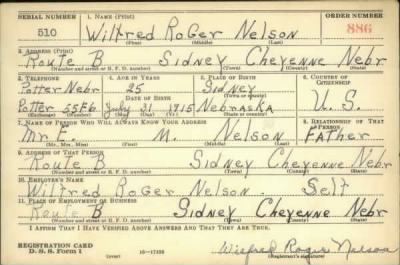 SERIAL NUMBER 1. NAME (Print) ORDER NUMBER
510 Wilfred RoGer Nelson 886
(First) (Middle) (Last)
2. ADDRESS (Print)
Route B Sidney Cheyenne Nebr
(Number and street or R. F. D. number) (Town) (County) (State)
3. TELEPHONE 4. AGE IN YEARS 5. PLACE OF BIRTH 6. COUNTRY OF CITIZENSHIP
Potter Nebr 25 Sidney
DATE OF BIRTH (Town or county)
Potter 55F6 July 31 1915 Nebraska U. S.
(Exchange) (Number) (Mo.) (Day) (Yr.) (State or country)
7. NAME OF PERSON WHO WILL ALWAYS KNOW YOUR ADDRESS 8. RELATIONSHIP OF THAT PERSON
Mr F. M. Nelson FATher
(Mr., Mrs., Miss) (First) (Middle) (Last)
9. ADDRESS OF THAT PERSON
Route B Sidney Cheyenne Nebr
(Number and street or R. F. D. number) (Town) (County) (State)
10. EMPLOYER'S NAME
Wilfred RoGer Nelson. Self
11. PLACE OF EMPLOYMENT OR BUSINESS
Route B Sidney Cheyenne Nebr
(Number and street or R. F. D. number) (Town) (County) (State)
I AFFIRM THAT I HAVE VERIFIED ABOVE ANSWERS AND THAT THEY ARE TRUE.
REGISTRATION CARD
D. S. S. Form 1 16-17105 Wilfred Roger Nelson
(Registrant's signature)